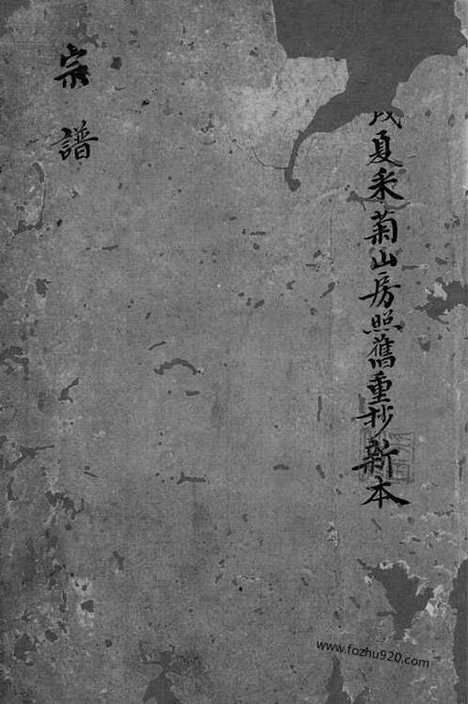 戌夏采菊山房照舊重抄新本
宗譜
www.fozhu920.com